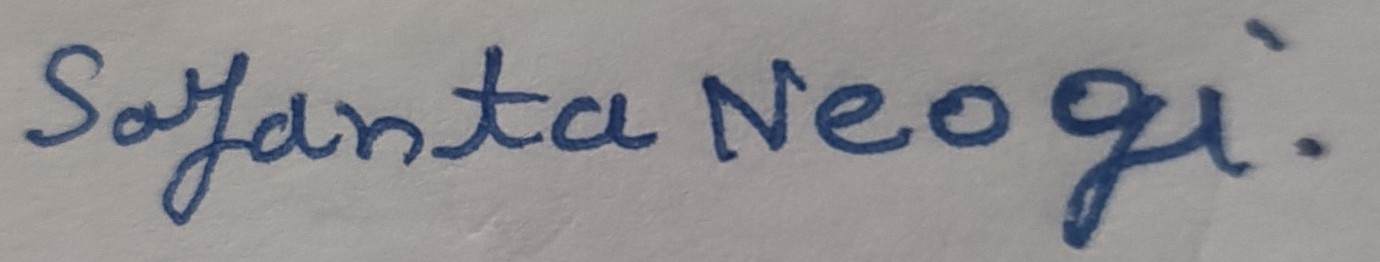 Sayanta Neogi.